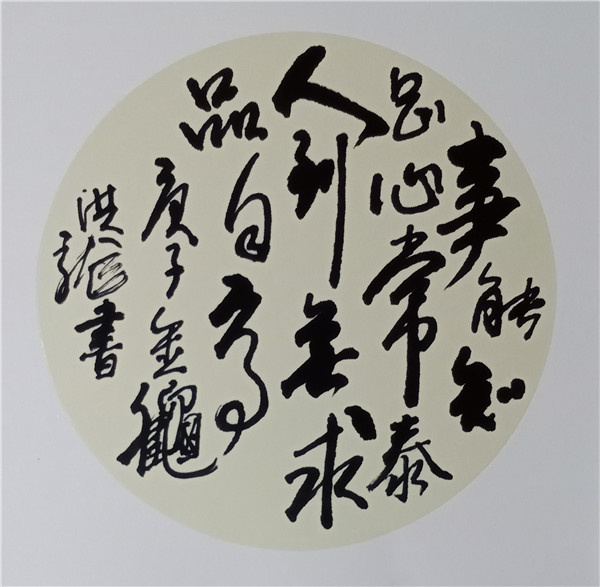 事能知
足心常泰
人到無求
品自高
庚子金龝
洪書